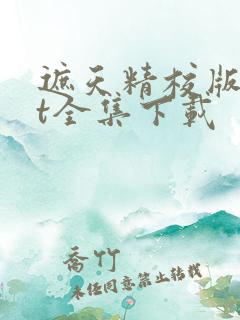 遮天精校版
t全集下载
乔竹
未经同意禁止转载